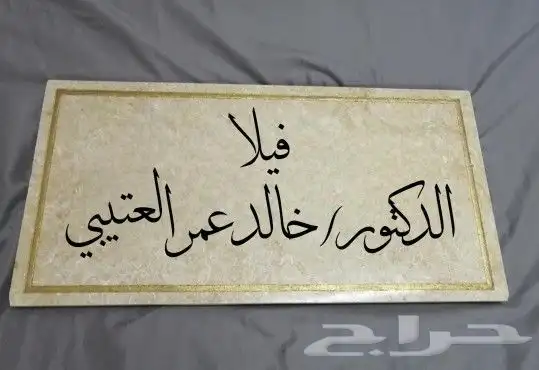 فيلا
الدكتور / خالد عمر العتيبي
حراج